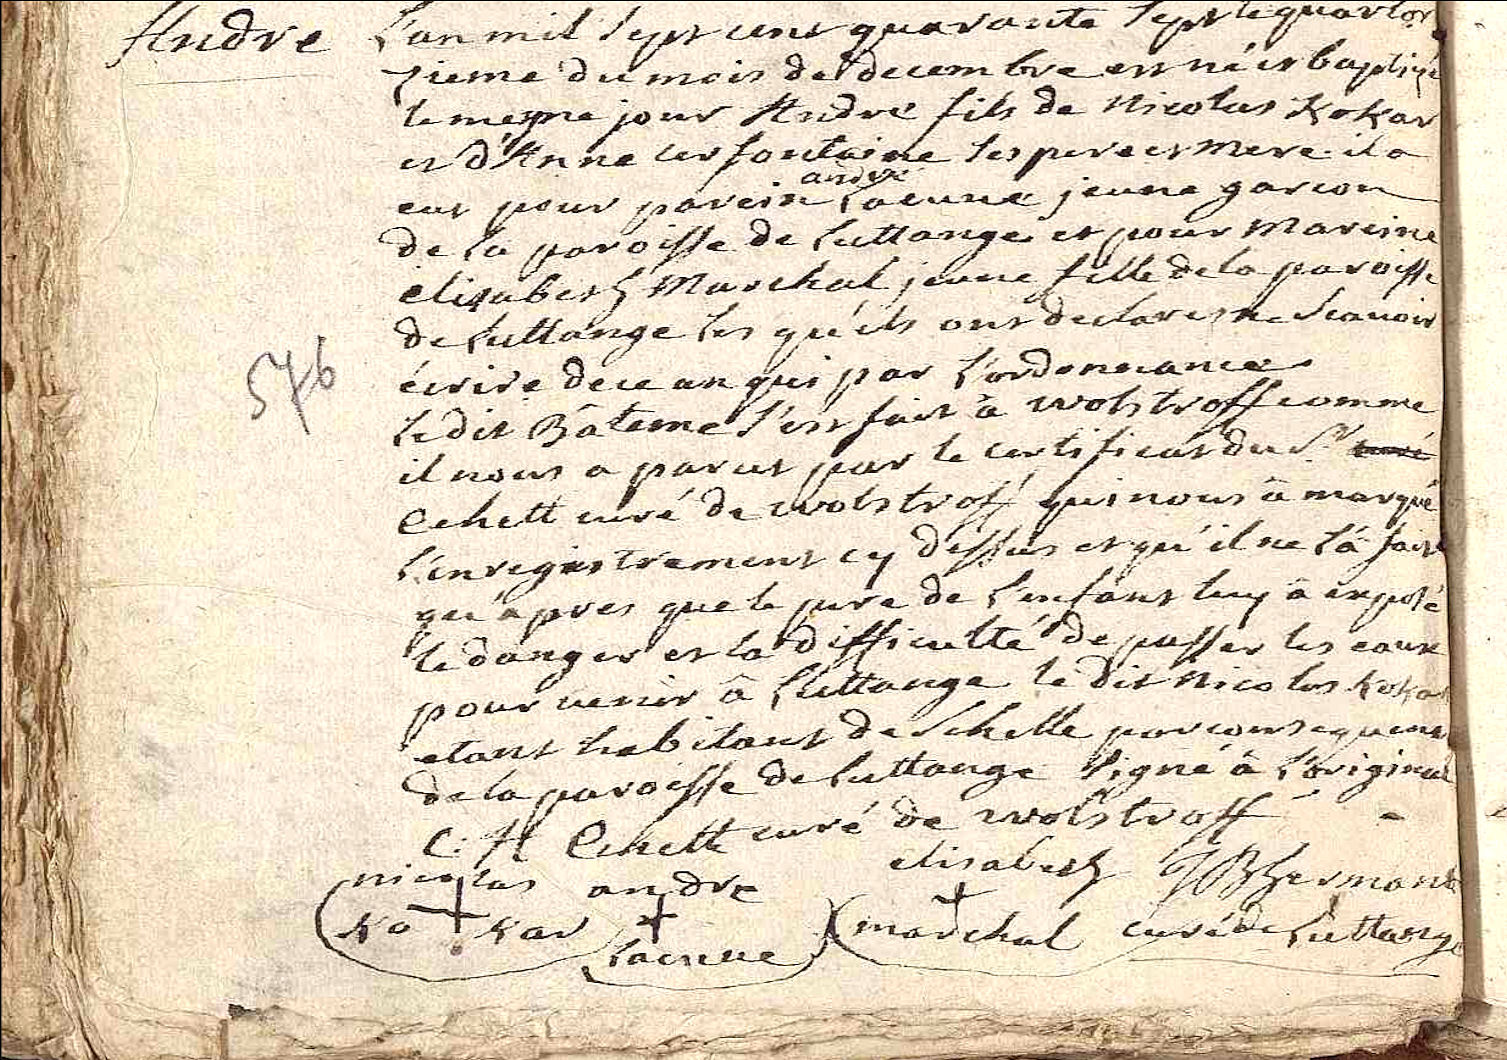 André
L'an mil sept cent quarante sept le quator
zieme du mois de decembre est né et baptizé
le mesme jour André fils de Nicolas Kokar
et d'Anne cerfontaine ses pere et mere il a
andre
eut pour parein Lacuve jeune garcon
de la paroisse de Luttange et pour mareine
elizabeth Marchal jeune fille de la paroisse
de Luttange les qu'els ont declarés ne scauoir
écrire de ce anquis par l'ordonnance
576
le dit Bâteme s'est fait â wolstroff comme
il nous a parut par le certificat du Sr curé
Echett curé de wolstroff qui nous â marqué
l'enregistrement cy dessus et qu'il ne l'â fait
qu'apres que le pere de l'enfant luy â exposé
le danger et la difficulté de passer les eaux
pour venir â Luttange le dit Nicolas Kokar
etant habitant de Schelle par consequent
de la paroisse de Luttange signé â l'original
C: H Echett curé de wolstroff
nicolas andre elisabeth JB hermant
ko + kar + marchal curé de Luttange
Lacuve